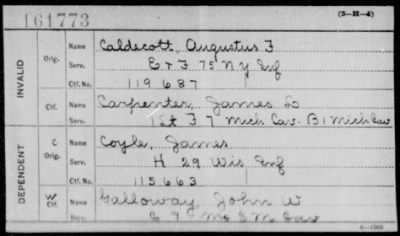 161773 (3-H-4)
INVALID Orig. Name Caldecott, Augustus F
Serv. E & F 75 N Y Inf
Ctf. No. 119 687
Ctf. Name Carpenter, James D
Serv. 1st F 7 Mich Cav. B 1 Mich Cav
DEPENDENT C Orig. Name Coyle, James
Serv. H 29 Wis Inf
Ctf. No. 115663
W Ctf. Name Galloway, John W
Serv. E 7 Mo S M Cav